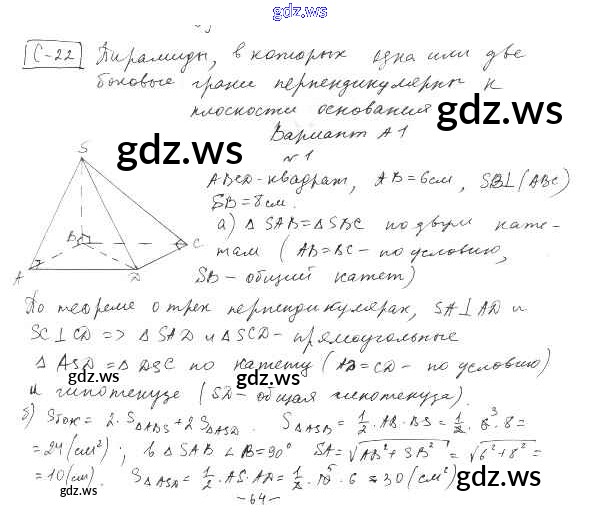 gdz.ws
С-22 Пирамиды, в которых одна или две
боковые грани перпендикулярны к
плоскости основания
gdz.ws
Вариант А1
gdz.ws
№1
S
ABCD-квадрат, AB=6см, SB⊥(ABC)
SB=8см.
а) △SAB=△SBC по двум кате-
там (AB=BC- по условию,
SB- общий катет)
B
C
A
D
gdz.ws
По теореме о трех перпендикулярах, SA⊥AD и
SC⊥CD => △SAD и △SCD- прямоугольные
△ASD=△DSC по катету (AD=CD- по условию)
и гипотенузе (SD- общая гипотенуза).
gdz.ws
gdz.ws
б) Sбок = 2·S△ABS+2S△ASD. S△ASB=1/2·AB·BS=1/2·6·8=
=24(см²); в △SAB ∠B=90° SA=√AB²+SB²=√6²+8²=
=10(см). S△ASD=1/2·AS·AD=1/2·10·6=30(см²)
gdz.ws
gdz.ws
-64-